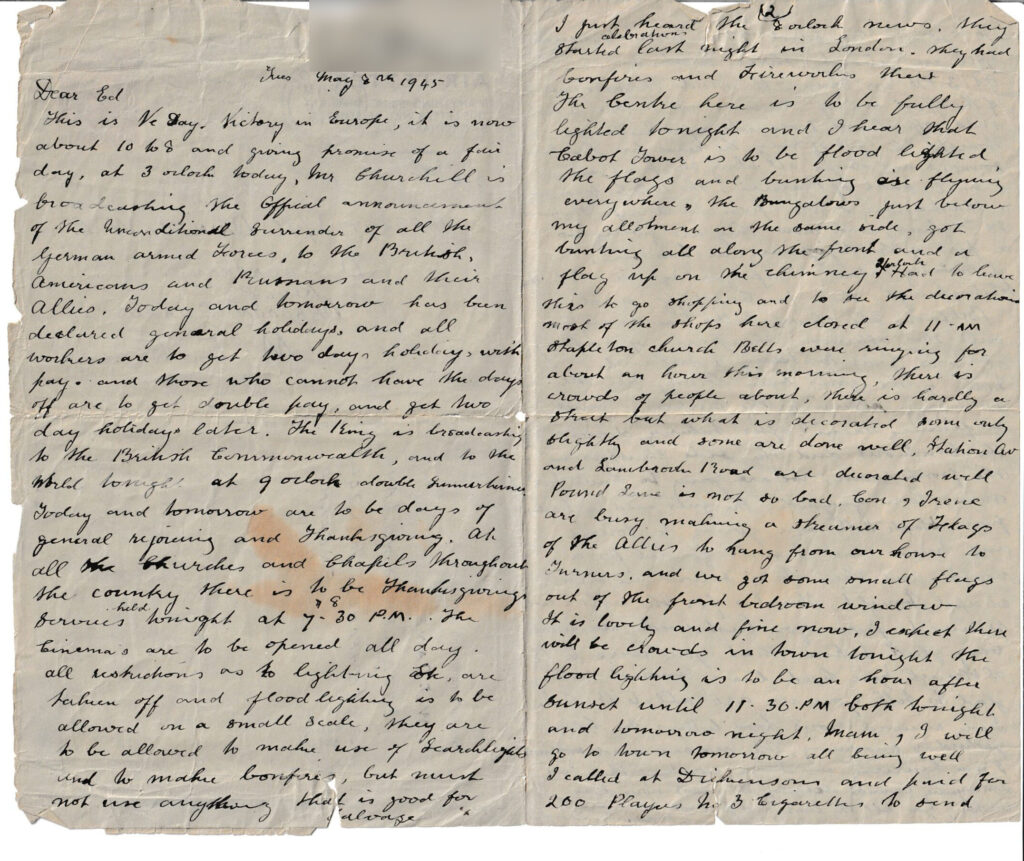 Tues May 8th 1945
Dear Ed
This is Ve Day. Victory in Europe, it is now
about 10 to 8 and giving promise of a fair
day, at 3 oclock today, Mr Churchill is
broadcasting the Offical announcement
of the Unconditional surrender of all the
German armed Forces, to the British,
Americans and Russians and their
Allies. Today and tomorrow has been
declared general holidays, and all
workers are to get two days holidays with
pay. and those who cannot have the days
off are to get double pay, and get two
day holidays later. The King is broadcasting
to the British Commonwealth, and to the
World tonight at 9 oclock double summertime
Today and tomorrow are to be days of
general rejoicing and Thanksgiving. At
all the Churches and Chapels throughout
the country there is to be Thanksgiving
Services held tonight at 7.30 P.M. The
Cinemas are to be opened all day.
all restrictions as to lighting are
taken off and flood lighting is to be
allowed on a small scale, they are
to be allowed to make use of Searchlights
and to make bonfires, but must
not use anything that is good for
Salvage
(2)
I just heard the 8 oclock news. they
started celebrations last night in London. they had
bonfires and Fireworks there
The Centre here is to be fully
lighted tonight and I hear that
Cabot Tower is to be flood lighted.
the flags and bunting are flying
everywhere, the Bungalows just below
my allotment on the same side, got
bunting all along the front and a
flag up on the chimney. Had to leave
this to go shopping and to see the decorations
most of the shops here closed at 11-AM
Stapleton church Bells were ringing for
about an hour this morning, there is
crowds of people about, there is hardly a
street but what is decorated some only
slightly and some are done well, Station Av
and Lambrook Road are decorated well
Pound Lane is not so bad. Con & Irene
are busy making a streamer of Flags
of the Allies to hang from our house to
Turners. and we got some small flags
out of the front bedroom window
It is lovely and fine now, I expect there
will be crowds in town tonight the
flood lighting is to be an hour after
sunset until 11-30.PM both tonight
and tomorrow night, Mam & I will
go to town tomorrow all being well
I called at Dickensons and paid for
200 Players No 3 Cigarettes to send